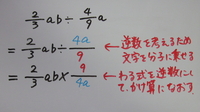 2/3 ab ÷ 4/9 a
= 2/3 ab ÷ 4a/9 ← 逆数を考えるため文字を分子に乗せる
= 2/3 ab × 9/4a ← わる式を逆数にして、かけ算になおす。